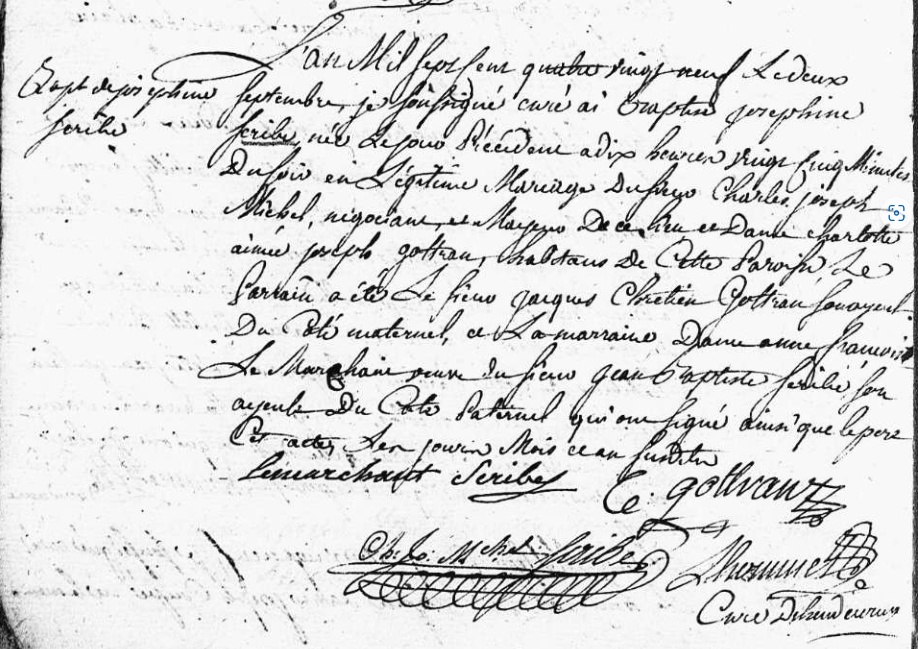 Bapt de joséphine
scribe
L'an Mil sept Cent quatre vingt neuf Le deux
septembre, je soussigné curé ai Baptisé joséphine
scribe, née Le jour Précédent a dix heures vingt Cinq Minutes
Du soir en Légitime Mariage Du sieur Charles joseph
Michel, négociant, et Mayeur De ce lieu et Dame charlotte
aimée joseph gottran, habitans De Cette Paroisse Le
Parrain a été Le sieur jacques Chretien Gottran son ayeul
Du Coté maternel, et La marraine Dame anne françoise
Le Marchant veuve du sieur jean Baptiste scribe son
ayeule Du Coté Paternel qui ont signé ainsi que le pere
Cet acte, Les jour Mois et an susdits
Lemarchant Scribe
C. gottran
Ch. Jo. Mchel Scribe
Lhommet
Curé